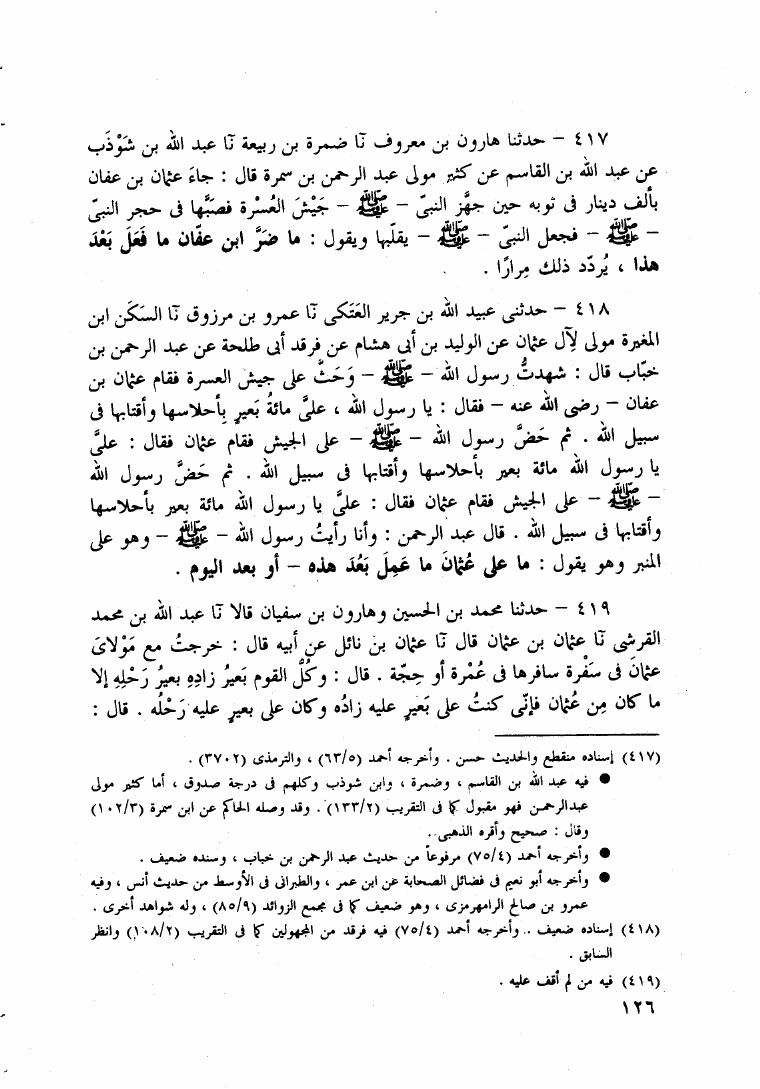 ٤١٧ – حدثنا هارون بن معروف نَا ضمرة بن ربيعة نَا عبد الله بن شَوْذَب
عن عبد الله بن القاسم عن كثير مولى عبد الرحمن بن سمرة قال : جاءَ عثمان بن عفان
بألف دينار فى ثوبه حين جهَّز النبىّ – ﷺ – جَيْشَ العُسْرة فصَبَّها فى حجر النبىّ
– ﷺ – فجعل النبىّ – ﷺ – يقلّبها ويقول : ما ضَرَّ ابن عفّان ما فَعَلَ بَعْدَ
هذا ، يُردّد ذلك مِرارًا .
٤١٨ – حدثنى عبيد الله بن جرير العَتَكى نَا عمرو بن مرزوق نَا السَكَن ابن
المغيرة مولى لِآل عثمان عن الوليد بن أبى هشام عن فرقد أبى طلحة عن عبد الرحمن بن
خبّاب قال : شهدتُ رسول الله – ﷺ – وَحَثَّ على جيش العسرة فقام عثمان بن
عفان – رضى الله عنه – فقال : يا رسول الله ، علىَّ مائةُ بَعيرٍ بِأحلاسها وأقتابها فى
سبيل الله . ثم حَضَّ رسول الله – ﷺ – على الجيش فقام عثمان فقال : علىَّ
يا رسول الله مائة بعير بأحلاسها وأقتابها فى سبيل الله . ثم حَضَّ رسول الله
– ﷺ – على الجيش فقام عثمان فقال : علىَّ يا رسول الله مائة بعير بأحلاسها
وأقتابها فى سبيل الله . قال عبد الرحمن : وأنا رأيتُ رسول الله – ﷺ – وهو على
المنبر وهو يقول : ما على عُثمانَ ما عَمِلَ بَعْدَ هذه – أو بعد اليوم .
٤١٩ – حدثنا محمد بن الحسين وهارون بن سفيان قالا نَا عبد الله بن محمد
القرشى نَا عثمان بن عثمان قال نَا عثمان بن نائل عن أبيه قال : خرجتُ مع مَوْلاىَ
عثمانَ فى سَفْرة سافرها فى عُمْرة أو حِجّة . قال : وكُلُّ القوم بَعيرُ زادِهِ بعيرُ رَحْلِهِ إلا
ما كان مِن عُثمان فإنّى كنتُ على بَعيرٍ عليه زادُه وكان على بعيرٍ عليه رَحْلُه . قال :
(٤١٧) إسناده منقطع والحديث حسن . وأخرجه أحمد (٦٣/٥) ، والترمذى (٣٧٠٢) .
● فيه عبد الله بن القاسم ، وضمرة ، وابن شوذب وكلهم فى درجة صدوق ، أما كثير مولى
عبدالرحمن فهو مقبول كما فى التقريب (١٣٣/٢) . وقد وصله الحاكم عن ابن سمرة (١٠٢/٣)
وقال : صحيح وأقره الذهبى .
● وأخرجه أحمد (٧٥/٤) مرفوعاً من حديث عبد الرحمن بن خباب ، وسنده ضعيف .
● وأخرجه أبو نعيم فى فضائل الصحابة عن ابن عمر ، والطبرانى فى الأوسط من حديث أنس ، وفيه
عمرو بن صالح الرامهرمزى ، وهو ضعيف كما فى مجمع الزوائد (٨٥/٩) ، وله شواهد أخرى .
(٤١٨) إسناده ضعيف .. وأخرجه أحمد (٧٥/٤) فيه فرقد من المجهولين كما فى التقريب (١٠٨/٢) وانظر
السابق .
(٤١٩) فيه من لم أقف عليه .
١٢٦